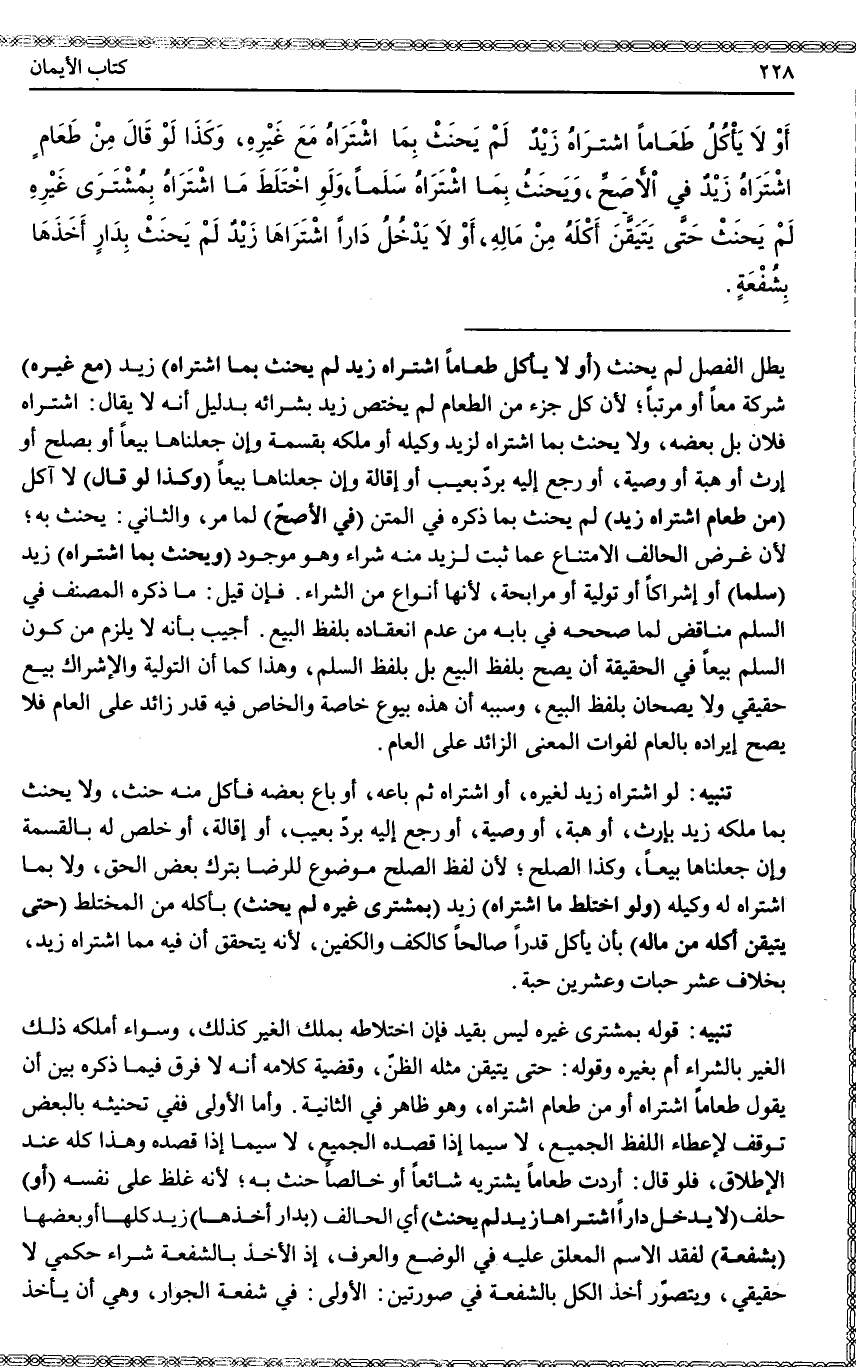 ٢٢٨ كتاب الأيمان
أَوْ لَا يَأْكُلُ طَعَاماً اشتـرَاهُ زَيْدٌ لَمْ يَحنَثْ بِمَا اشْتَرَاهُ مَعَ غَيْرِهِ، وَكَذَا لَوْ قَالَ مِنْ طَعَامٍ
اشْتَرَاهُ زَيْدٌ في الْأَصَحِّ، وَيَحنَثُ بِمَـا اشْتَرَاهُ سَلَمـاً، وَلَو اخْتَلَطَ مَـا اشْتَرَاهُ بِمُشْتَرَى غَيْرِهِ
لَمْ يَحنَثْ حَتَّى يَتَيَقَّنَ أَكْلَهُ مِنْ مَالِهِ، أَوْ لَا يَدْخُلُ دَاراً اشْتَرَاهَا زَيْدٌ لَمْ يَحنَثْ بِدَارٍ أَخَذَهَا
بِشُفْعَةٍ.
يطل الفصل لم يحنث (أو لا يـأكل طعـاماً اشتـراه زيد لم يحنث بمـا اشتراه) زيـد (مع غيـره)
شركة معاً أو مرتباً؛ لأن كل جزء من الطعام لم يختص زيد بشرائه بـدليل أنـه لا يقال: اشتـراه
فلان بل بعضه، ولا يحنث بما اشتراه لزيد وكيله أو ملكه بقسمة وإن جعلنـاهـا بيعاً أو بصلح أو
إرث أو هبة أو وصية، أو رجع إليه بردّ بعيـب أو إقالة وإن جعلنـاهـا بيعاً (وكـذا لو قـال) لا آكل
(من طعام اشتراه زيد) لم يحنث بما ذكره في المتن (في الأصحّ) لما مر، والثـاني: يحنث به؛
لأن غـرض الحالف الامتنـاع عما ثبت لـزيد منـه شراء وهـو موجـود (ويحنث بما اشتـراه) زيد
(سلما) أو إشراكاً أو تولية أو مرابحة، لأنها أنـواع من الشراء. فـإن قيل: مـا ذكره المصنف في
السلم منـاقض لما صححـه في بابـه من عدم انعقـاده بلفظ البيع. أجيب بـأنه لا يلزم من كـون
السلم بيعاً في الحقيقة أن يصح بلفظ البيع بل بلفظ السلم، وهذا كما أن التولية والإشراك بيـع
حقيقي ولا يصحان بلفظ البيع، وسببه أن هذه بيوع خاصة والخاص فيه قدر زائد على العام فلا
يصح إيراده بالعام لفوات المعنى الزائد على العام.
تنبيه: لو اشتراه زيد لغيره، أو اشتراه ثم باعه، أو باع بعضه فـأكل منـه حنث، ولا يحنث
بما ملكه زيد بإرث، أو هبة، أو وصية، أو رجع إليه بردّ بعيب، أو إقالة، أو خلص له بـالقسمة
وإن جعلناها بيعـاً، وكذا الصلح؛ لأن لفظ الصلح مـوضوع للرضـا بترك بعض الحق، ولا بمـا
اشتراه له وكيله (ولو اختلط ما اشتراه) زيد (بمشترى غيره لم يحنث) بـأكله من المختلط (حتى
يتيقن أكله من ماله) بأن يأكل قدراً صالحاً كالكف والكفين، لأنه يتحقق أن فيه مما اشتراه زيد،
بخلاف عشر حبات وعشرين حبة.
تنبيه: قوله بمشترى غيره ليس بقيد فإن اختلاطه بملك الغير كذلك، وسـواء أملكه ذلـك
الغير بالشراء أم بغيره وقوله: حتى يتيقن مثله الظنّ، وقضية كلامه أنـه لا فرق فيمـا ذكره بين أن
يقول طعاماً اشتراه أو من طعام اشتراه، وهو ظاهر في الثانيـة. وأما الأولى ففي تحنيثـه بالبعض
تـوقف لإعطاء اللفظ الجميـع، لا سيما إذا قصـده الجميع، لا سيمـا إذا قصده وهـذا كله عنـد
الإطلاق، فلو قال: أردت طعاماً يشتريه شـائعاً أو خـالصاً حنث بـه؛ لأنه غلظ على نفسـه (أو)
حلف (لا يدخل داراً اشتراها زيد لم يحنث) أي الحالف (بدار أخذها) زيد كلهـا أو بعضهـا
(بشفعة) لفقد الاسم المعلق عليـه في الوضع والعرف، إذ الأخـذ بـالشفعة شراء حكمي لا
حقيقي، ويتصوّر أخذ الكل بالشفعة في صورتين: الأولى: في شفعة الجوار، وهي أن يـأخذ